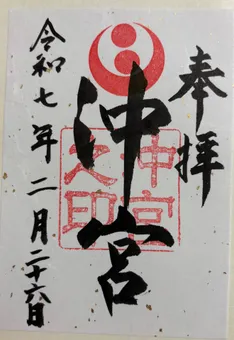 奉拝
沖宮
沖宮之印
令和七年二月二十六日